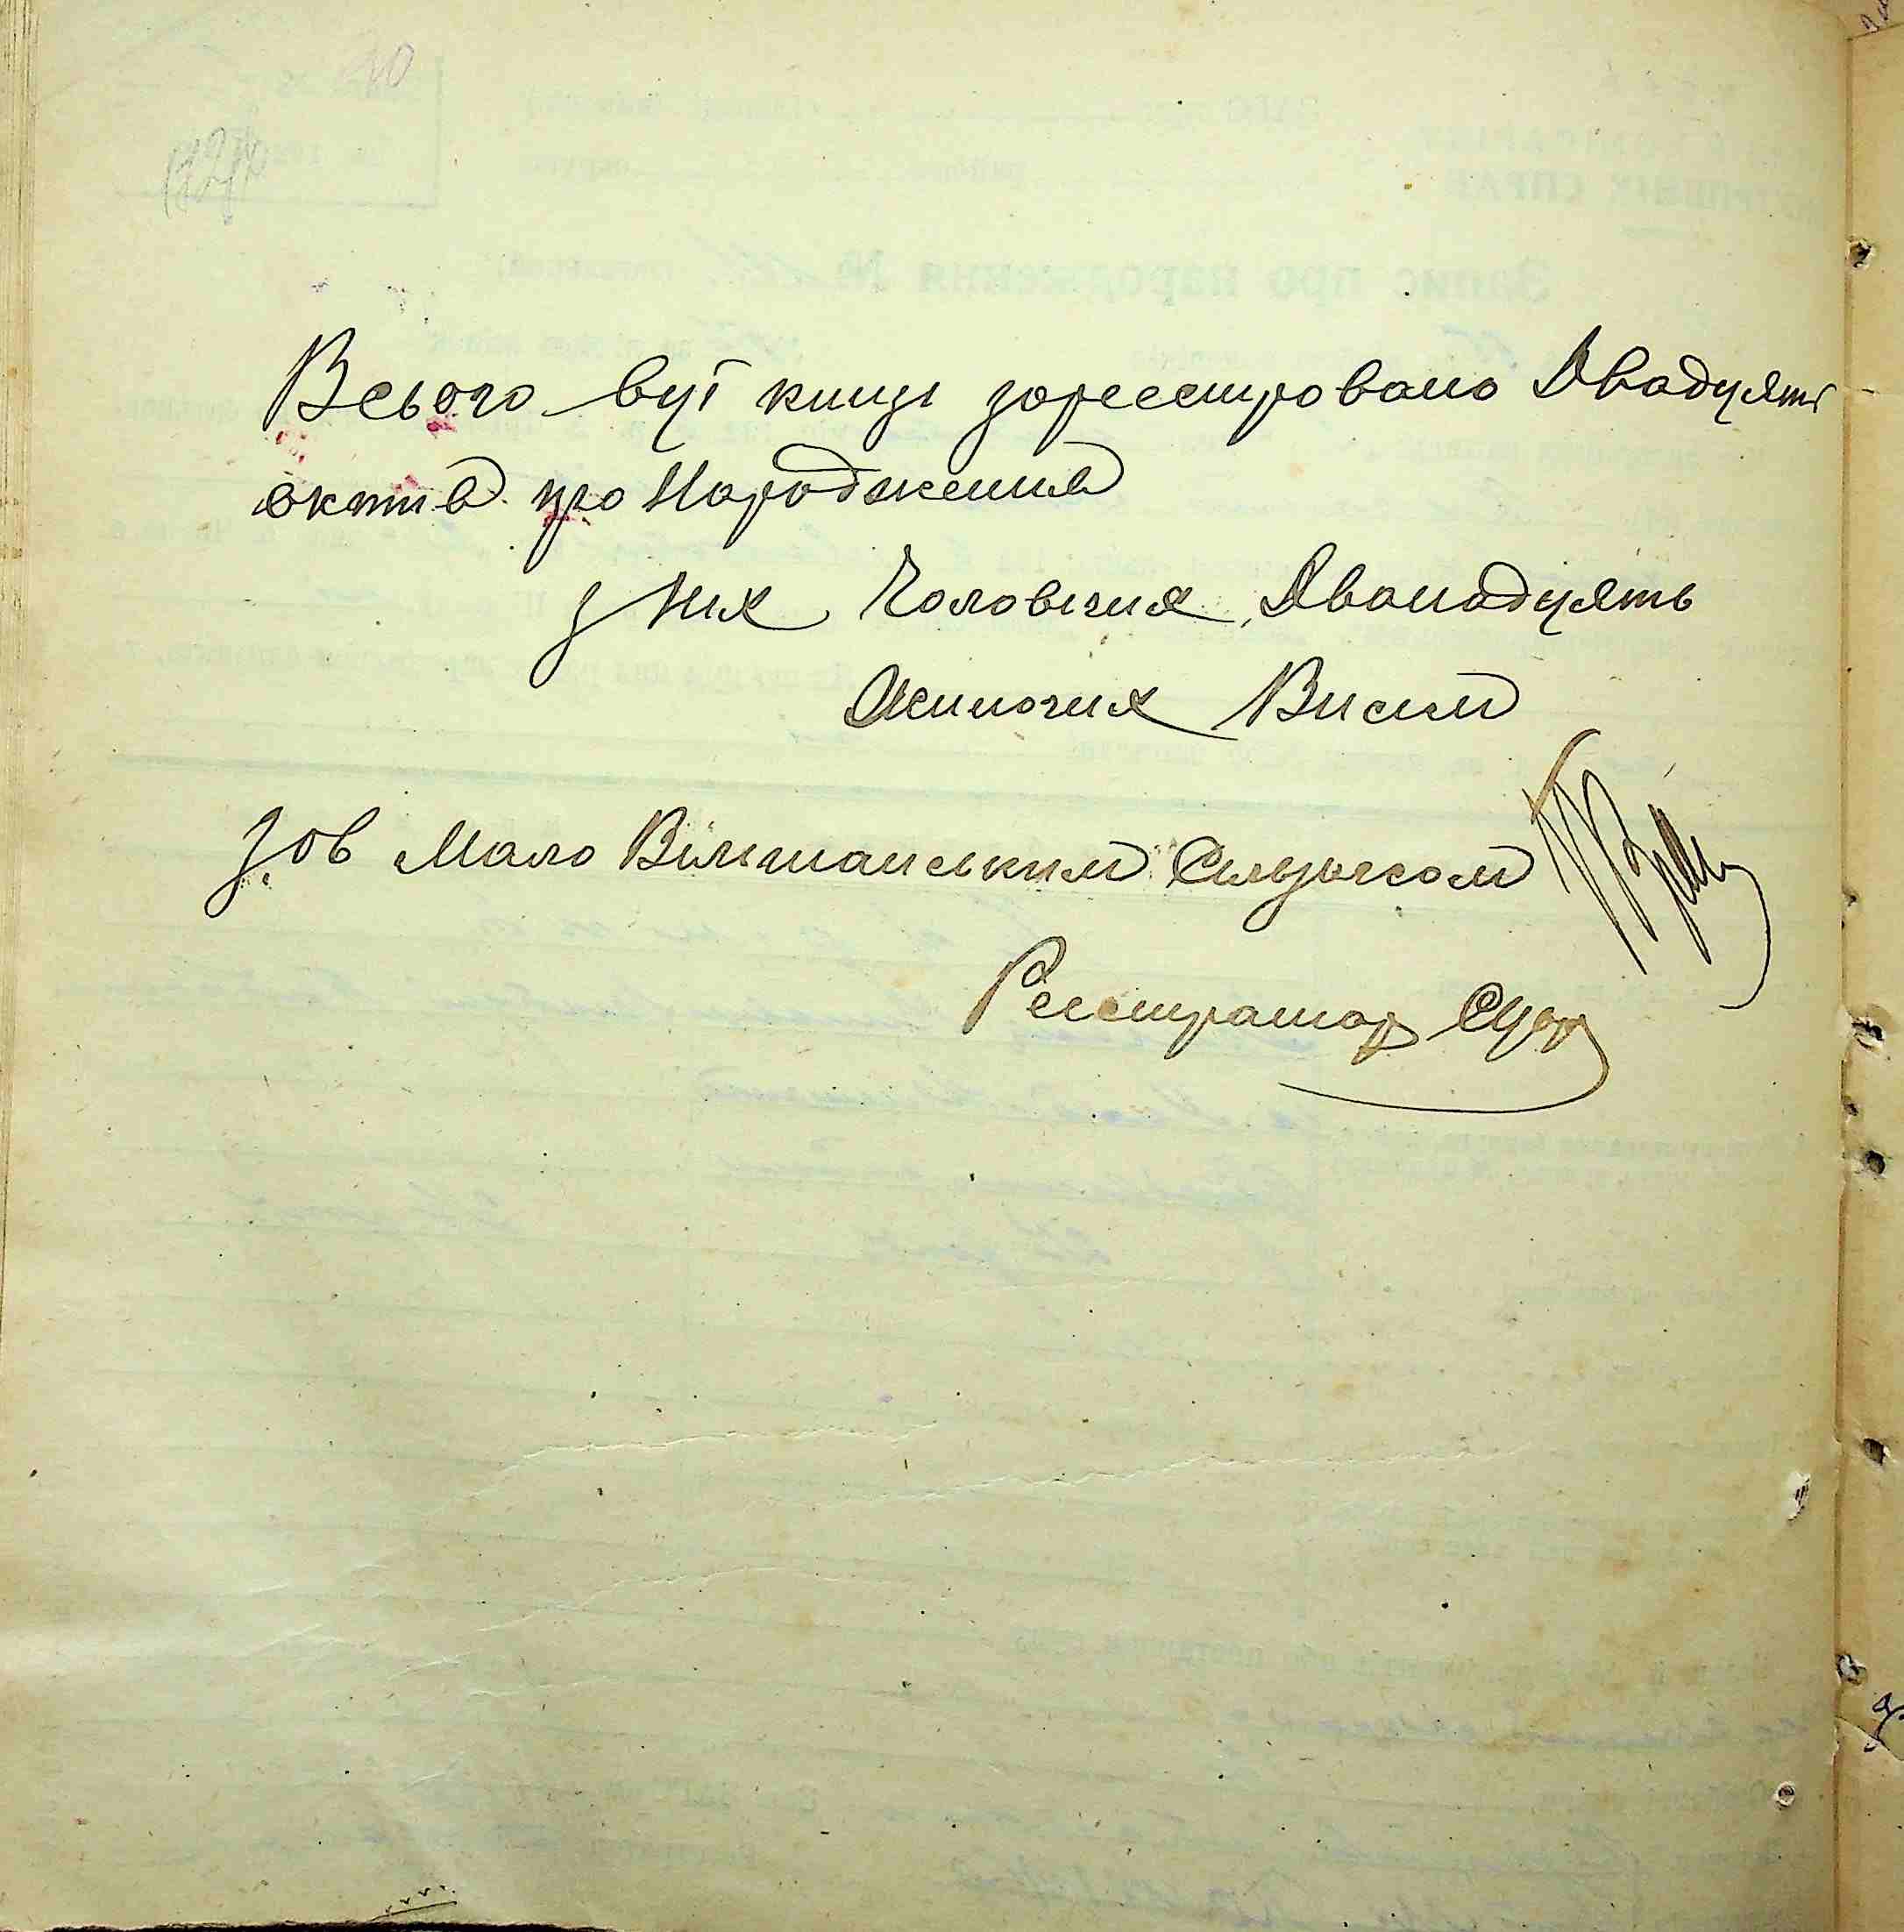 Всього вції книзі зареєстровано Двадцять
актів про Народження
з них Чоловічих Дванадцять
Жиночих Висім
Зав Мало Вільшанським Сільзагсом
Реєстратор